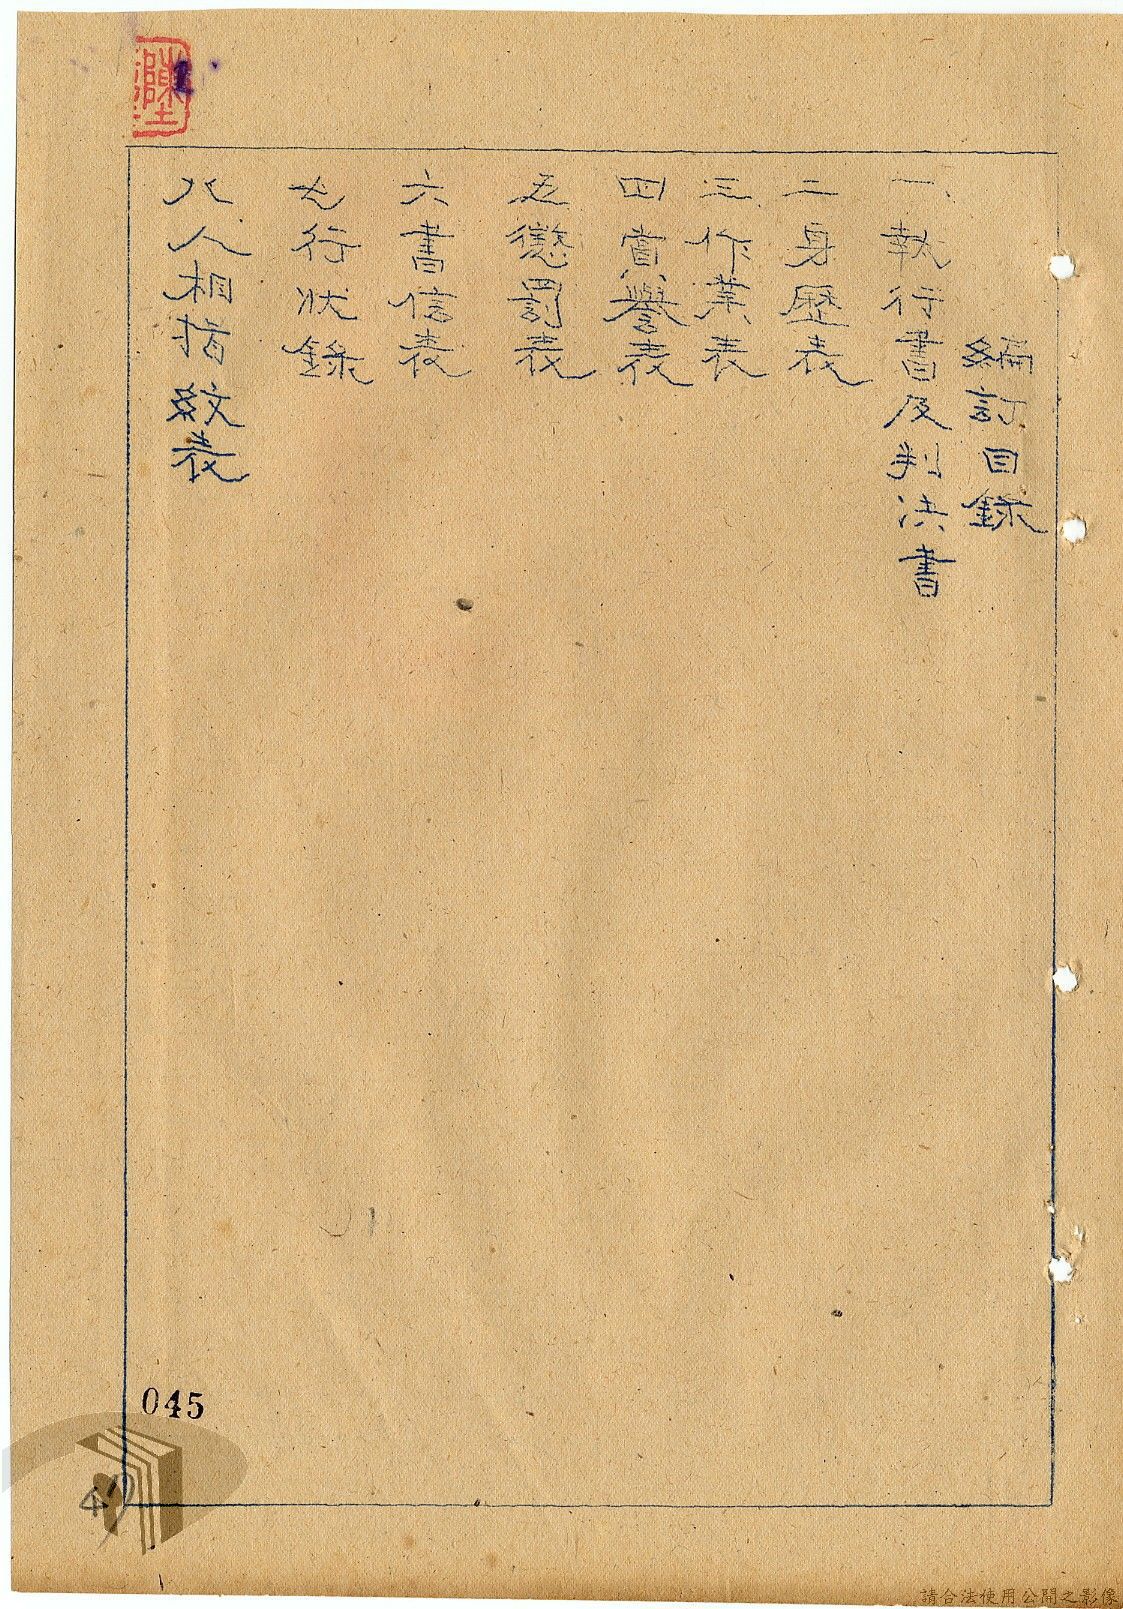 編訂目錄
一、執行書及判決書
二身歷表
三作業表
四賞譽表
五懲罰表
六書信表
七行狀錄
八人相指紋表
045
47
請合法使用公開之影像